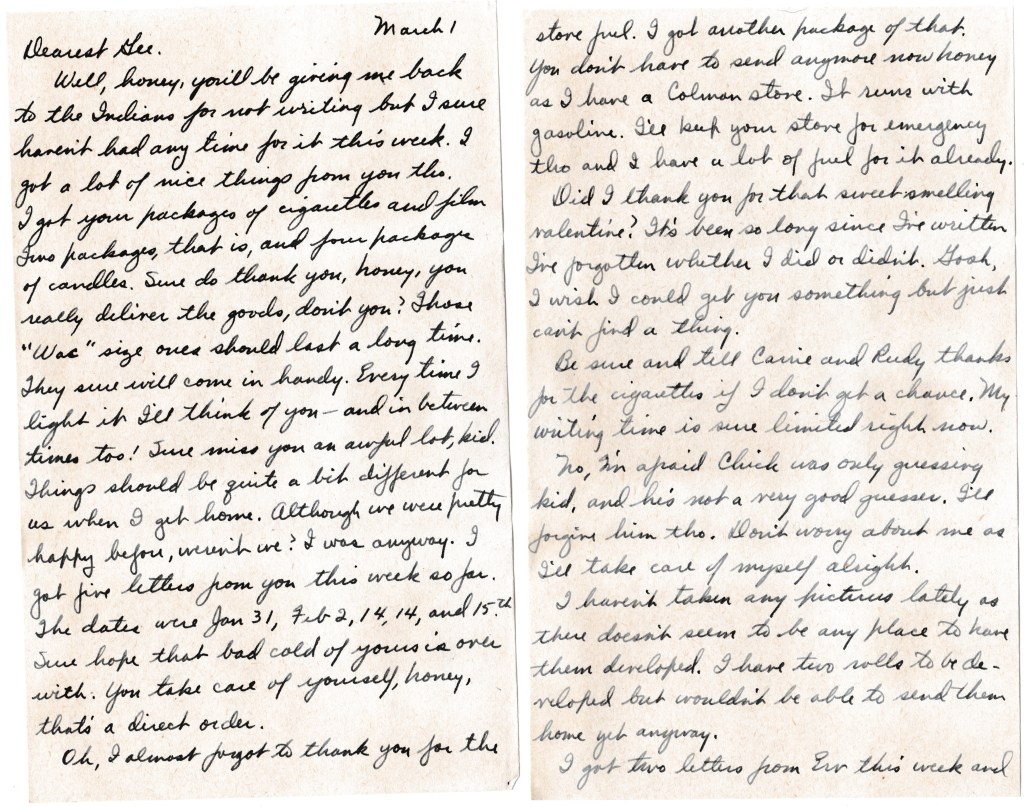 March 1
Dearest Gee.
Well, honey, you'll be giving me back
to the Indians for not writing but I sure
haven't had any time for it this week. I
got a lot of nice things from you tho.
I got your packages of cigarettes and film
Two packages, that is, and four packages
of candles. Sure do thank you, honey, you
really deliver the goods, don't you? Those
"Wac" size ones should last a long time.
They sure will come in handy. Every time I
light it I'll think of you — and in between
times too! Sure miss you an awful lot, kid.
Things should be quite a bit different for
us when I get home. Although we were pretty
happy before, weren't we? I was anyway. I
got five letters from you this week so far.
The dates were Jan 31, Feb 2, 14, 14, and 15th
Sure hope that bad cold of yours is over
with. You take care of yourself, honey,
that's a direct order.
Oh, I almost forgot to thank you for the
stove fuel. I got another package of that.
You don't have to send anymore now honey
as I have a Colman stove. It runs with
gasoline. I'll keep your stove for emergency
tho and I have a lot of fuel for it already.
Did I thank you for that sweet-smelling
valentine? It's been so long since I've written
I've forgotten whether I did or didn't. Gosh,
I wish I could get you something but just
can't find a thing.
Be sure and tell Carrie and Rudy thanks
for the cigarettes if I don't get a chance. My
writing time is sure limited right now.
No, I'm afraid Chick was only guessing
kid, and he's not a very good guesser. I'll
forgive him tho. Don't worry about me as
I'll take care of myself alright.
I haven't taken any pictures lately as
there doesn't seem to be any place to have
them developed. I have two rolls to be de-
veloped but wouldn't be able to send them
home yet anyway.
I got two letters from Erv this week and